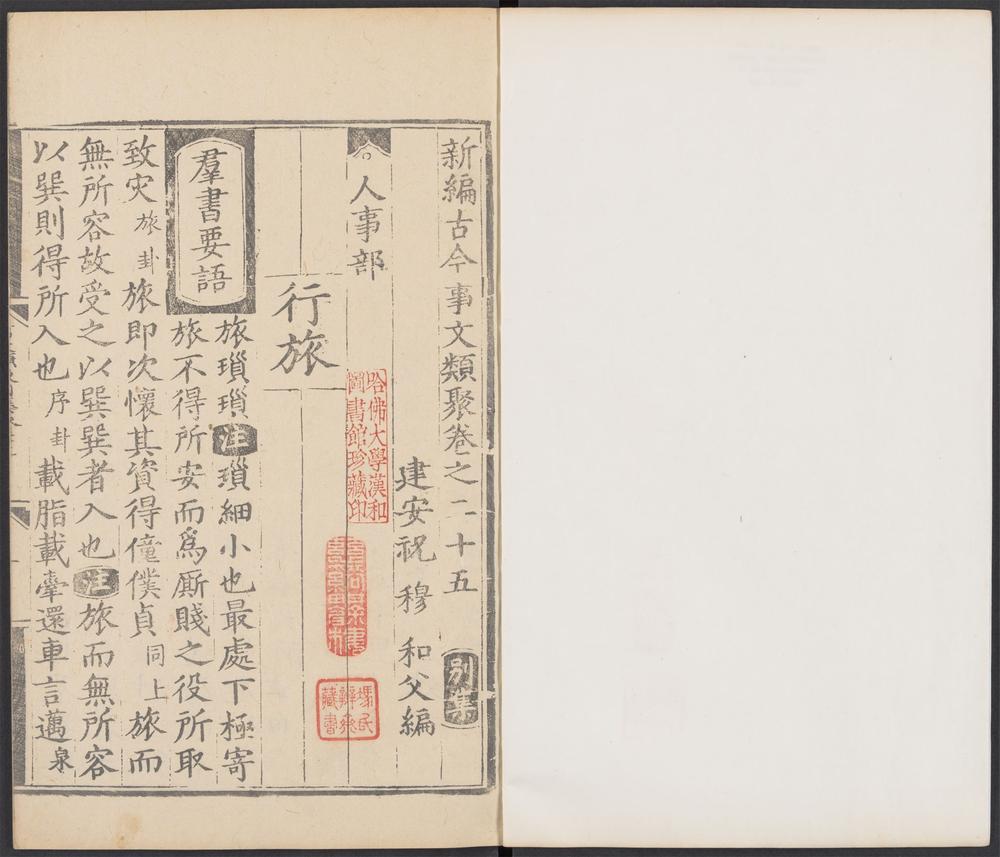 新編古今事文類聚卷之二十五 別集
建安祝 穆 和父編
人事部
行旅
羣書要語
旅瑣瑣注瑣細小也最處下極寄
旅不得所安而爲厮賤之役所取
致灾旅卦旅即次懷其資得僮僕貞同上旅而
無所容故受之以巽巽者入也注旅而無所容
以巽則得所入也序卦載脂載舝還車言邁泉
哈佛大學漢和
圖書館珍藏印
藏書